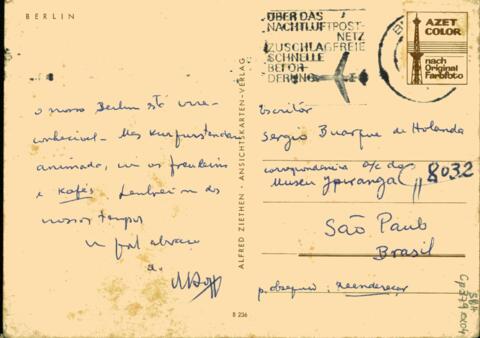 BERLIN
ÜBER DAS
NACHTLUFTPOST-
NETZ
ZUSCHLAGFREIE
SCHNELLE
BEFÖR-
DERUNG
AZET
COLOR
nach
Original
Farbfoto
o nosso Berlin está irre-
conhecível. Mas Kurfurstendam
animada, com os frauleins
e Kafés. Lembrei-me dos
nossos tempos
um forte abraço
do
ALFRED ZIETHEN · ANSICHTSKARTEN-VERLAG
B 236
Escritór
Sergio Buarque de Holanda
correspondencia a/c do
Museu Ypiranga
8032
São Paulo
Brasil
p. obsequio: Reendereçar
SBH
Cp 379